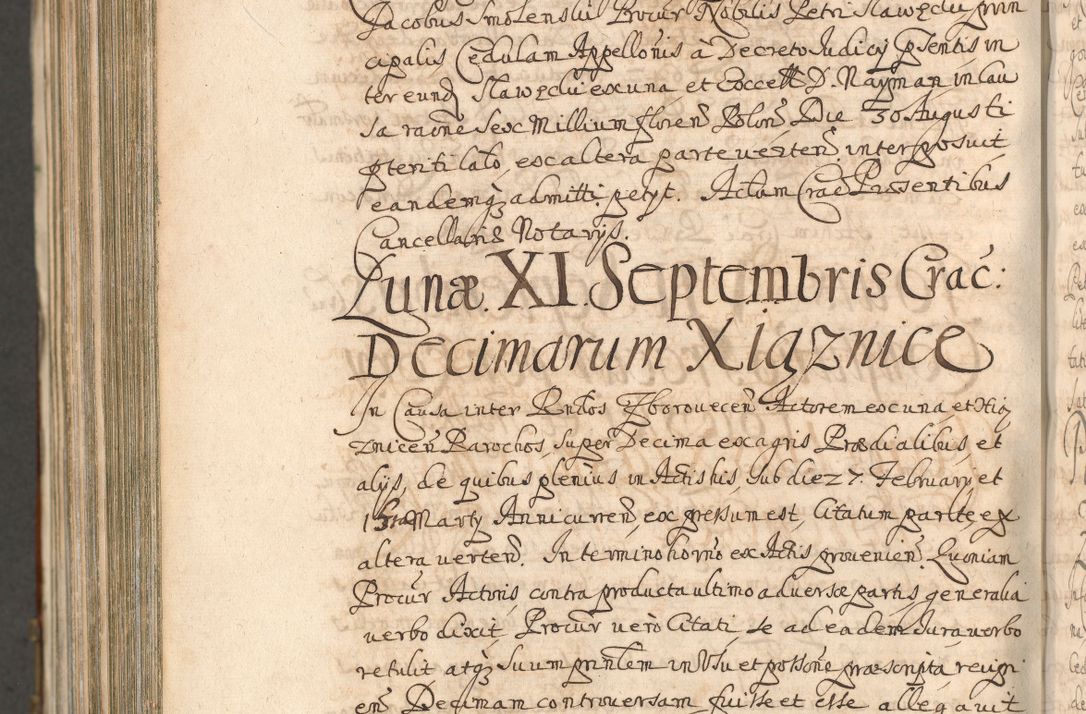 Jacobus Smolenski Procur Nobilis Petri Slawęcki prin
cipalis Cedulam Appellõnis à Decreto Judicij pñsentis in
ter eundẽ Slawęcki ex una et Excell D. Nayman in Cau
sa raõne Sex Millium florenõ Polonõ Die 30 Augusti
pteriti lato, ex altera parte verteñ interposuit
eandemqз admitti petyt. Actum Crac Præsentibus
Cancellariæ Notarijs.
Lunæ XI Septembris Crac:
Decimarum Xiąznice
In Causa inter Rndos Zboroviecen Actorem ex una et Xią
znicen Parochos super Decima ex agris Prædialibus et
alijs, de quibus plenius in Actis his, sub die 27. February et
Marty Anni curren expressum est, Citatum parte ex
altera verteñ. In termino horno ex Actis provenien. Quoniam
Procur Actoris contra producta ultimo adversæ partis generalia
verbo dixit. Procur verò Citati se ad eadem Jura verbo
retulit atqз suum prinlem in Usu et possõne præscripta recipi
en Decimam controversam fuisse et esse allegavit